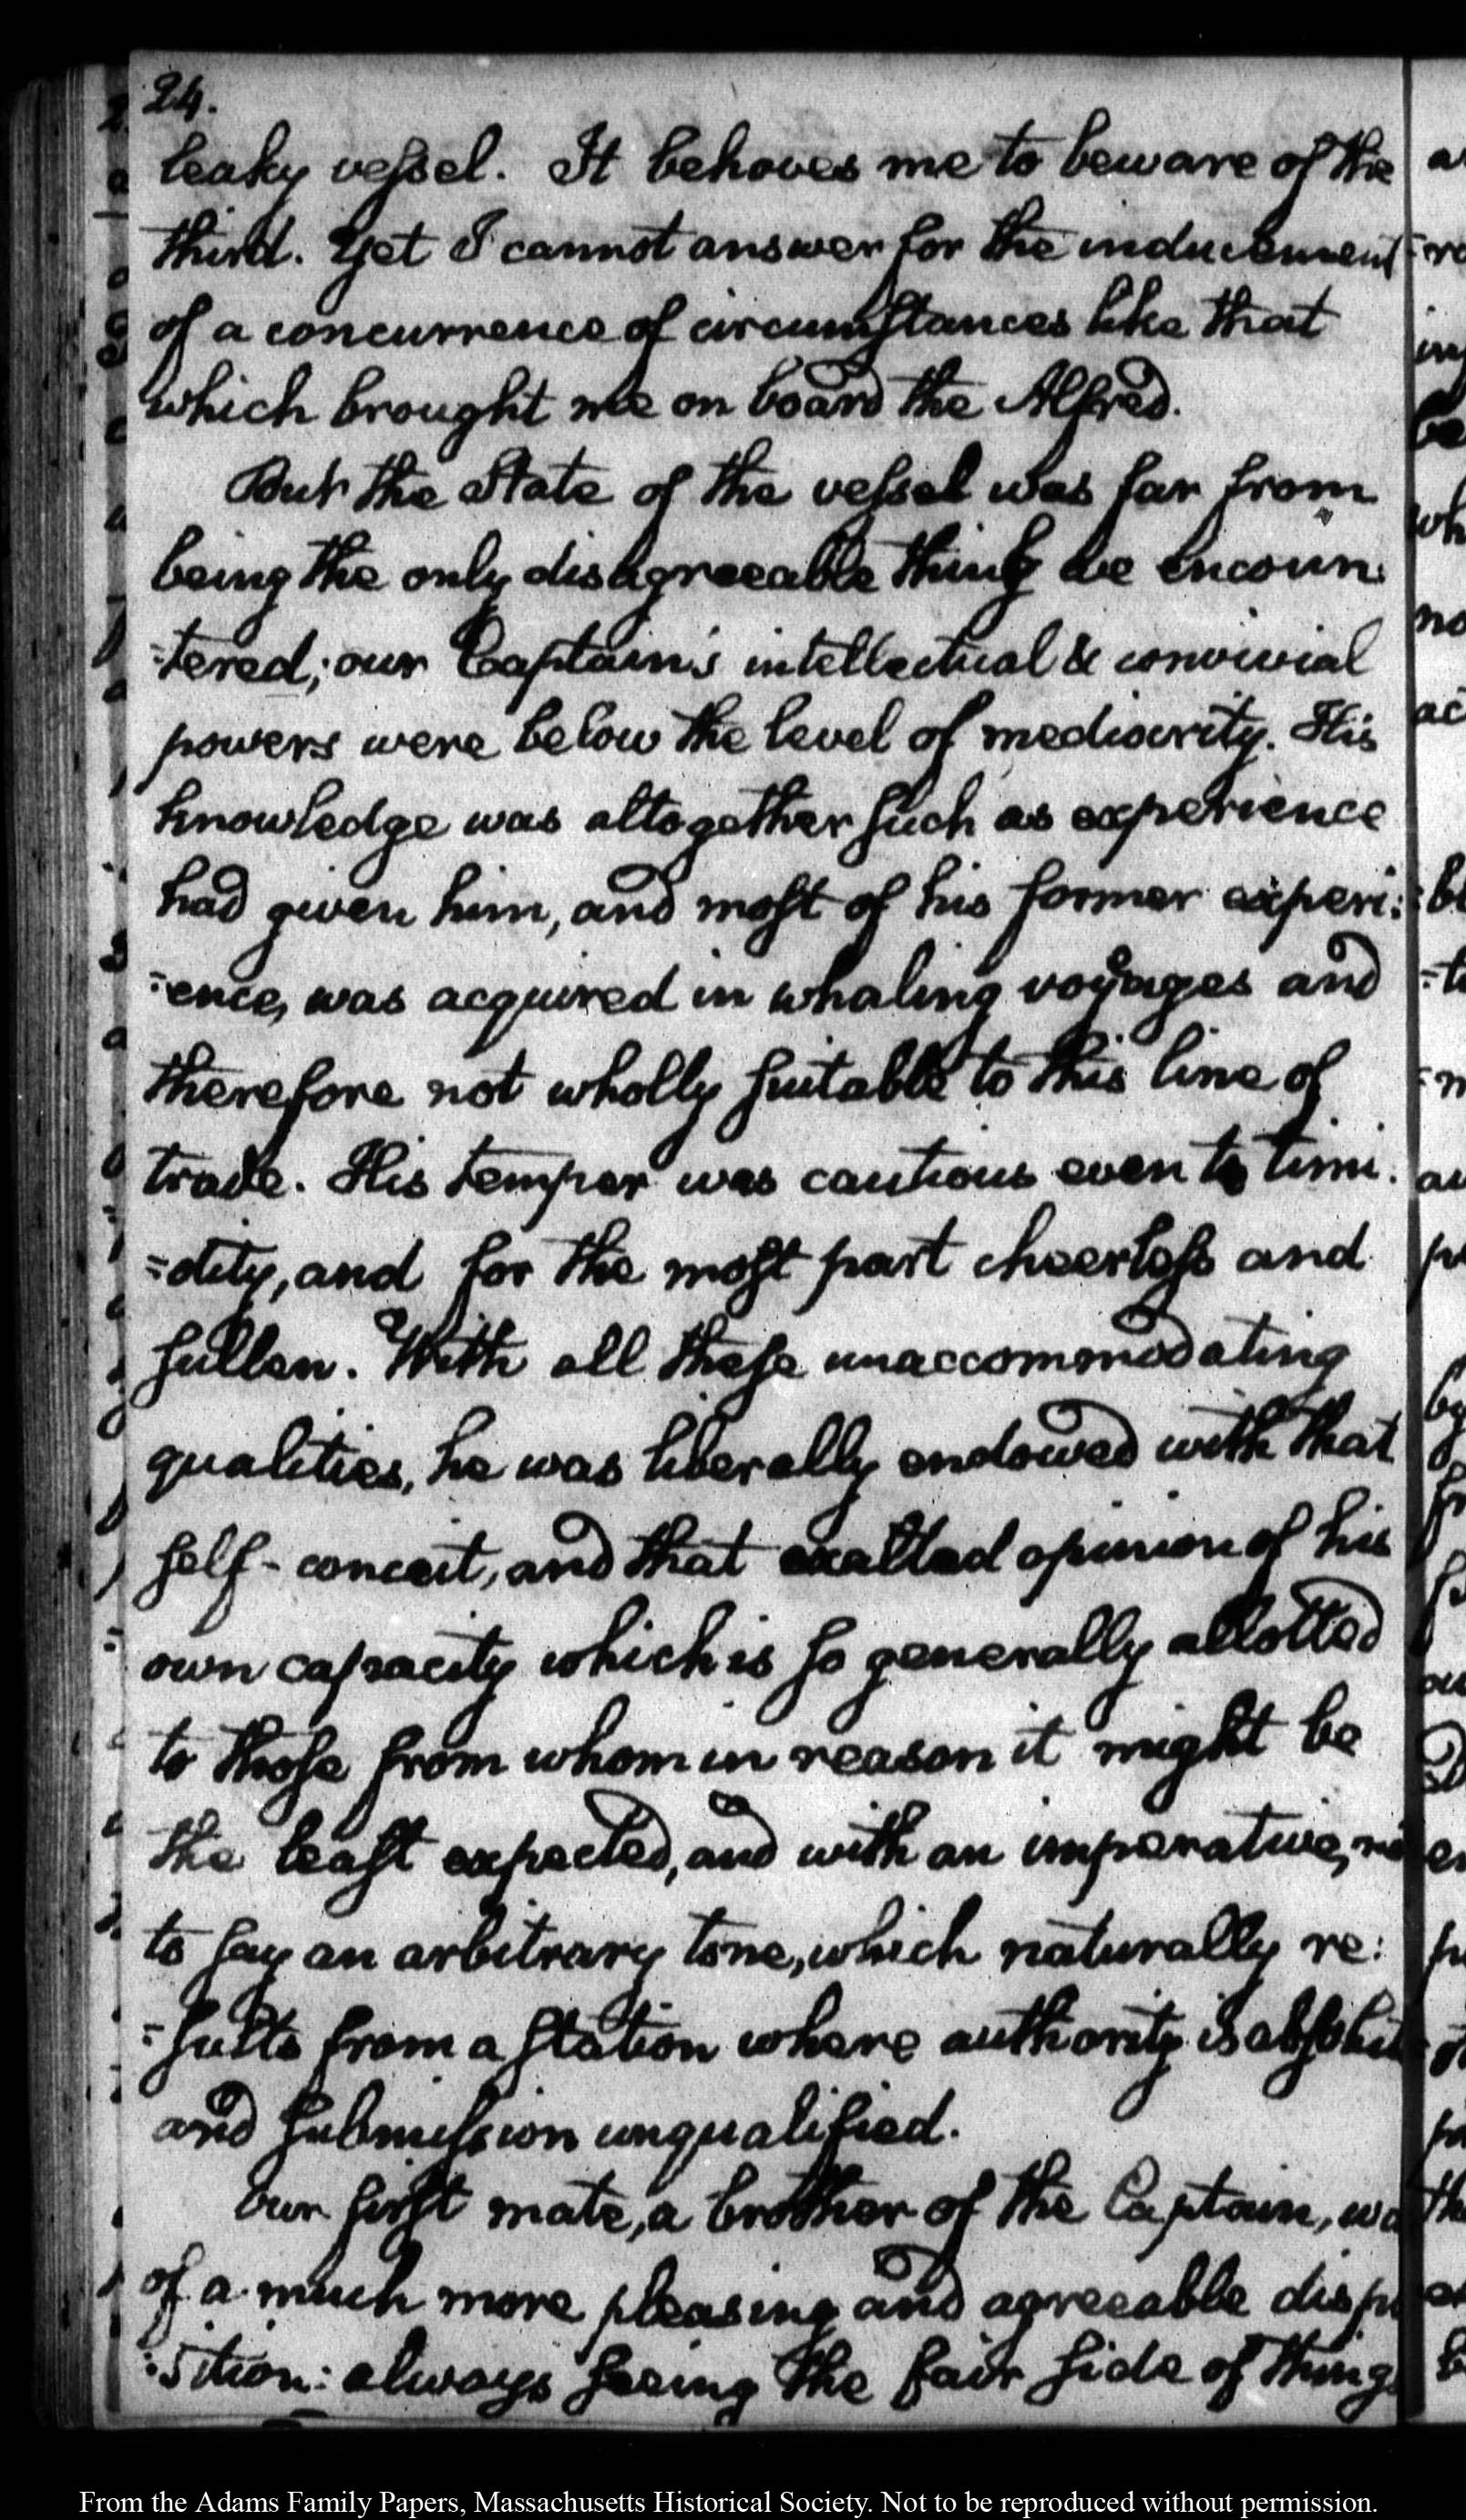 24.
leaky vessel. It behoves me to beware of the
third. Yet I cannot answer for the inducement
of a concurrence of circumstances like that
which brought me on board the Alfred.
But the State of the vessel was far from
being the only disagreeable thing we encoun:
:tered; our Captain's intellectual & convivial
powers were below the level of mediocrity. His
knowledge was altogether such as experience
had given him, and most of his former experi:
:ence, was acquired in whaling voyages and
therefore not wholly suitable to this line of
trade. His temper was cautious even to timi:
:dity, and for the most part cheerless and
sullen. With all these unaccommodating
qualities, he was liberally endowed with that
self-conceit, and that exalted opinion of his
own capacity which is so generally allotted
to those from whom in reason it might be
the least expected, and with an imperative,
to say an arbitrary tone, which naturally re:
:sults from a station where authority is absolut
and submission unqualified.
Our first mate, a brother of the Captain, wa
of a much more pleasing and agreeable dispo
:sition: always seeing the fair side of things
From the Adams Family Papers, Massachusetts Historical Society. Not to be reproduced without permission.